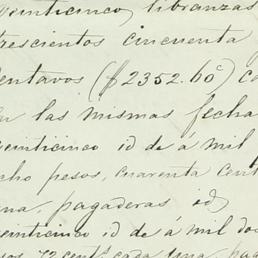 veinticinco libranzas
trescientos cincuenta
centavos ($2352.60c) co
en las mismas fecha
veinticinco id de a mil
ocho pesos, cuarenta cent
una, pagaderas id
veinticinco id de á mil dos
sos, 72 cents cada una, pag